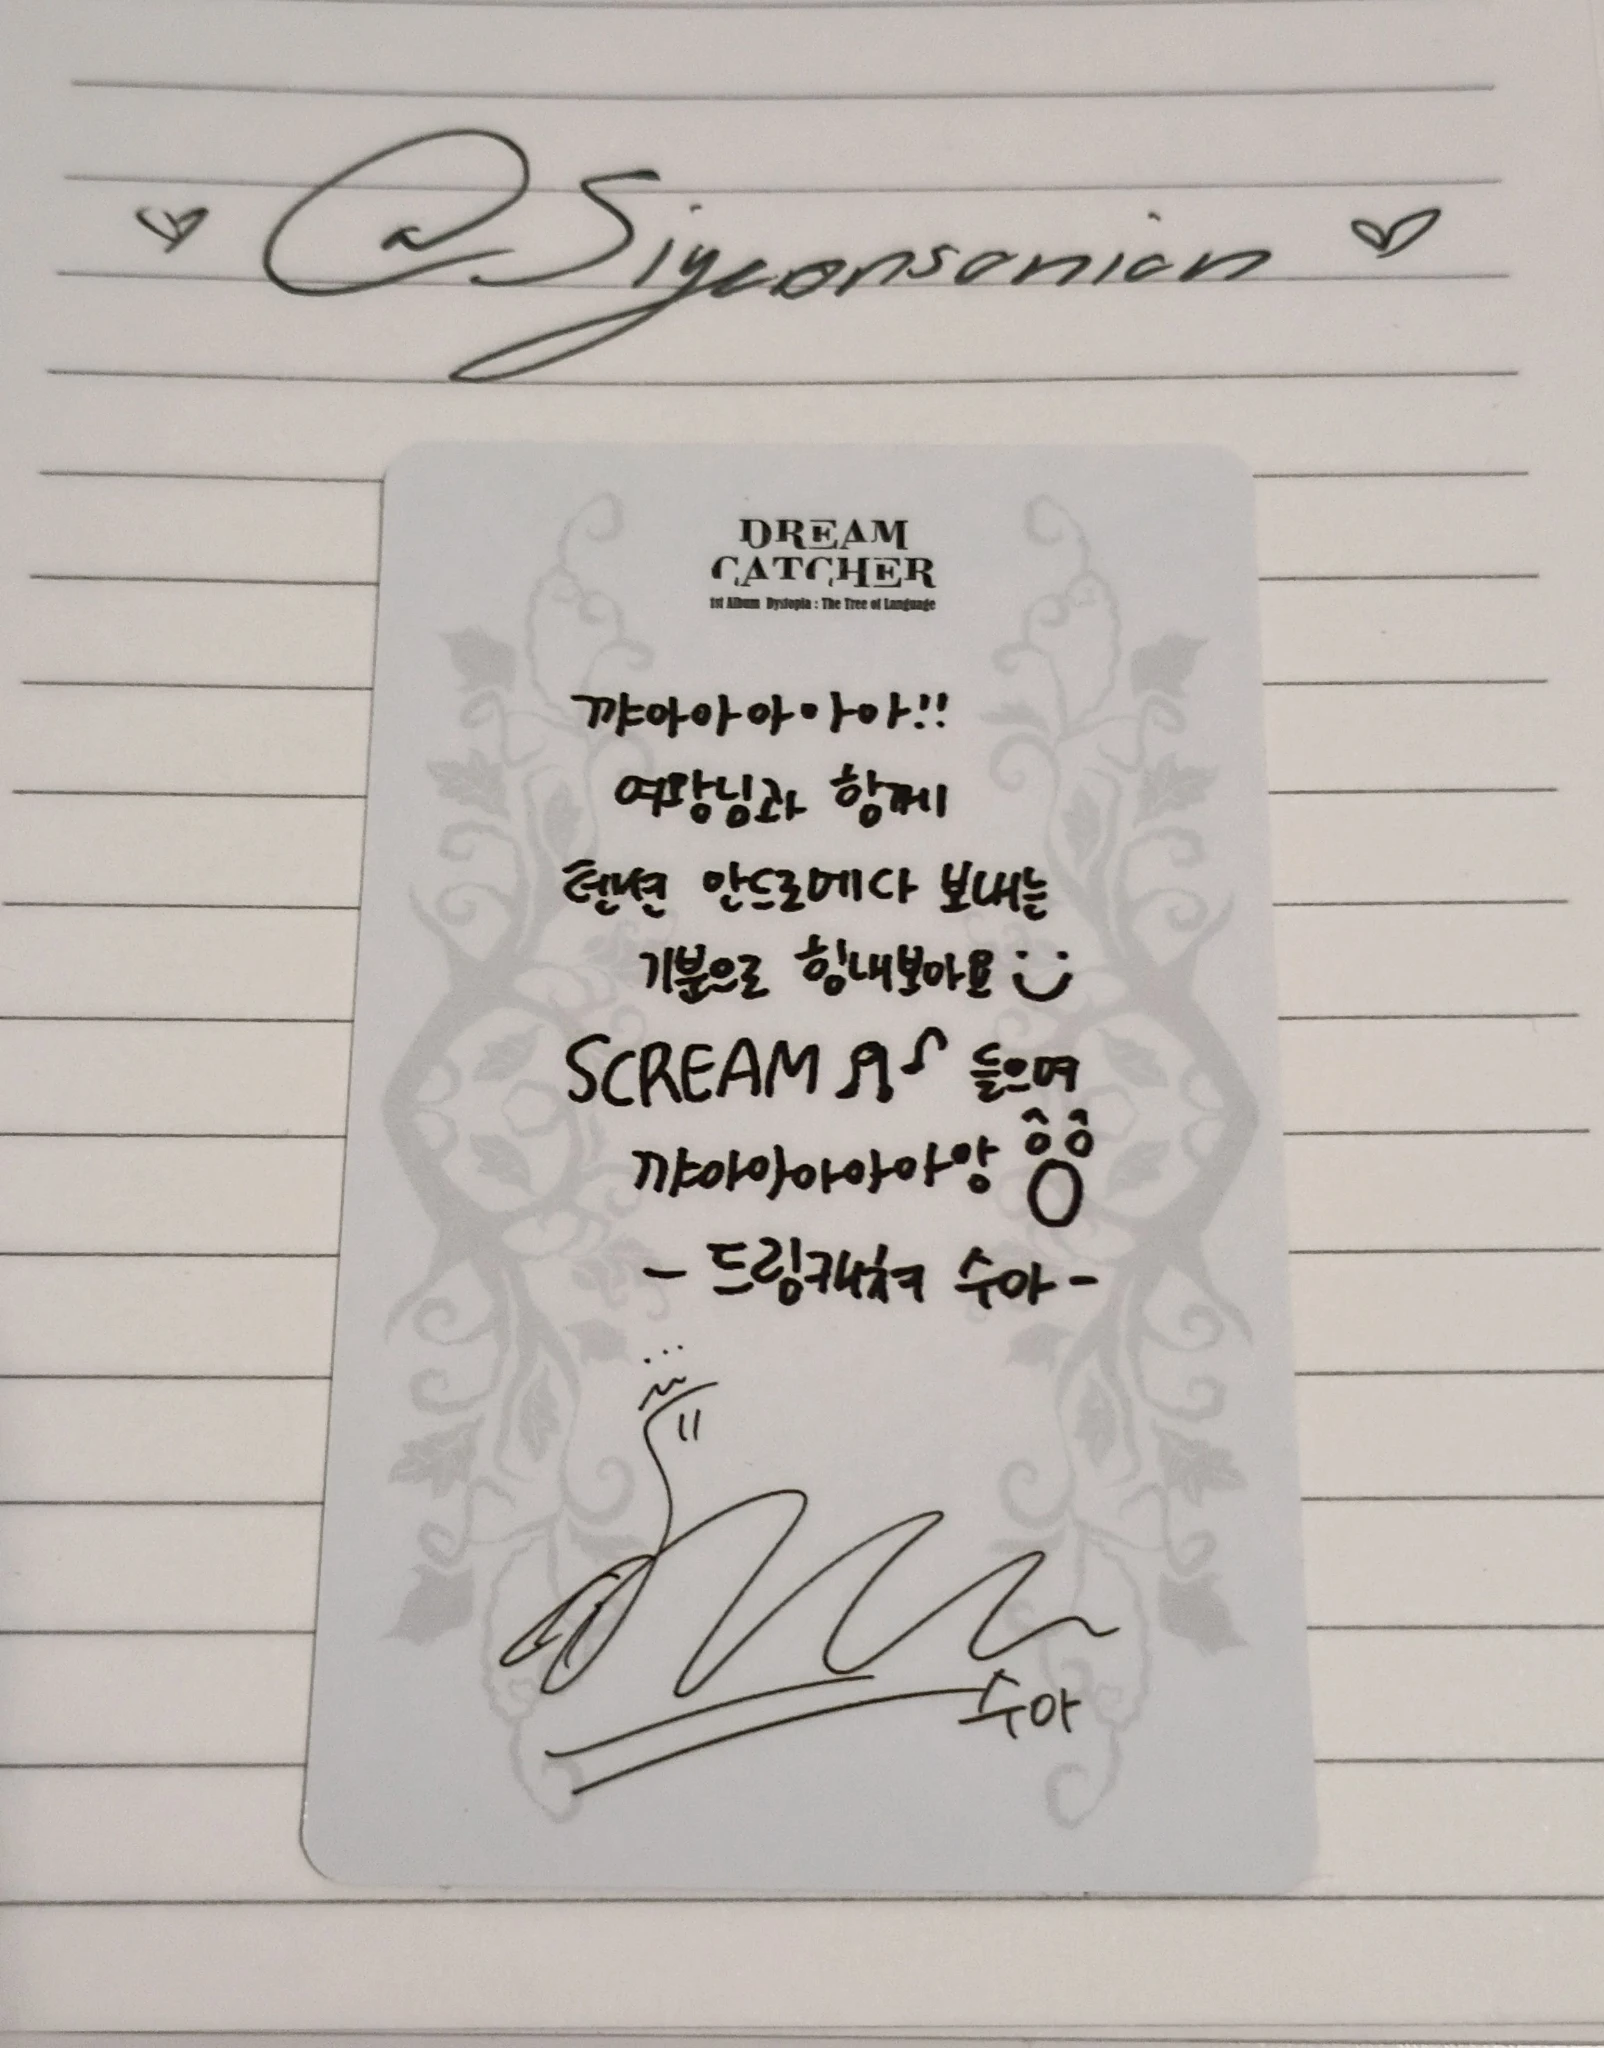 @Siyeonsanian
DREAM
CATCHER
1st Album Dystopia : The Tree of Language
꺄아아아아아!!
여왕님과 함께
텐션 안드로메다 보내는
기분으로 힘내보아요
SCREAM 들으며
꺄아아아아아앙
- 드림캐쳐 수아 -
수아